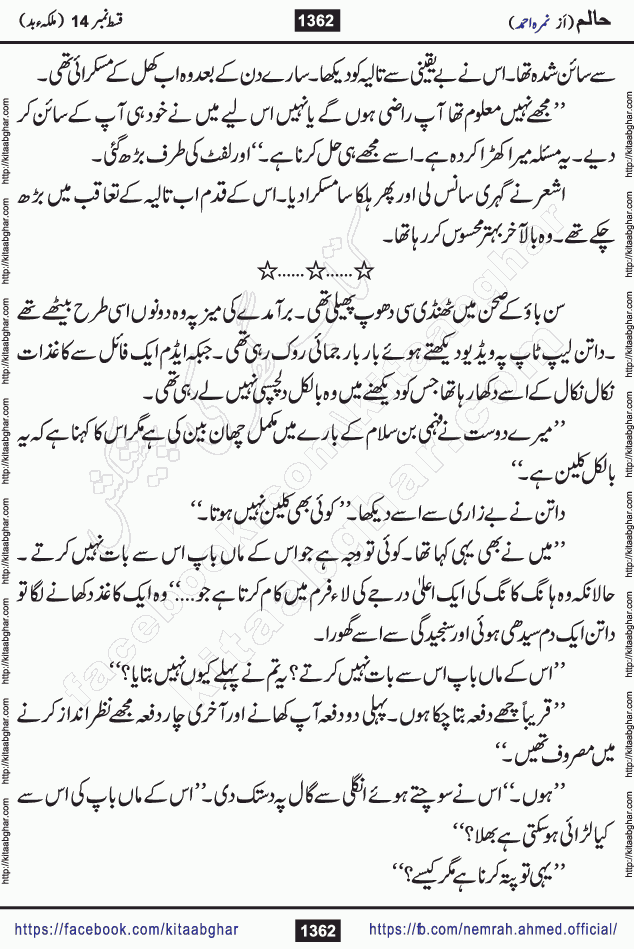 حالم (از نمرہ احمد) 1362 قسط نمبر 14 (ملکہء بد)
سے سائن شدہ تھا۔ اس نے بے یقینی سے تالیہ کو دیکھا۔ سارے دن کے بعد وہ اب کھل کے مسکرائی تھی۔
’’مجھے نہیں معلوم تھا آپ راضی ہوں گے یا نہیں اس لیے میں نے خود ہی آپ کے سائن کر
دیے۔ یہ مسئلہ میرا کھڑا کردہ ہے۔ اسے مجھے ہی حل کرنا ہے۔‘‘ اور لفٹ کی طرف بڑھ گئی۔
اشعر نے گہری سانس لی اور پھر ہلکا سا مسکرا دیا۔ اس کے قدم اب تالیہ کے تعاقب میں بڑھ
چکے تھے۔ وہ بالآخر بہتر محسوس کر رہا تھا۔
☆......☆......☆
سن باؤ کے صحن میں ٹھنڈی سی دھوپ پھیلی تھی۔ برآمدے کی میز پہ وہ دونوں اسی طرح بیٹھے تھے
۔ داتن لیپ ٹاپ پہ ویڈیو دیکھتے ہوئے بار بار جمائی روک رہی تھی۔ جبکہ ایڈم ایک فائل سے کاغذات
نکال نکال کے اسے دکھا رہا تھا جس کو دیکھنے میں وہ بالکل دلچسپی نہیں لے رہی تھی۔
’’میرے دوست نے فہمی بن سلام کے بارے میں مکمل چھان بین کی ہے مگر اس کا کہنا ہے کہ یہ
بالکل کلین ہے۔‘‘
داتن نے بے زاری سے اسے دیکھا۔ ’’کوئی بھی کلین نہیں ہوتا۔‘‘
’’میں نے بھی یہی کہا تھا۔ کوئی تو وجہ ہے جو اس کے ماں باپ اس سے بات نہیں کرتے۔
حالانکہ وہ ہانگ کانگ کی ایک اعلیٰ درجے کی لاء فرم میں کام کرتا ہے جو....‘‘ وہ ایک کاغذ دکھانے لگا تو
داتن ایک دم سیدھی ہوئی اور سنجیدگی سے اسے گھورا۔
’’اس کے ماں باپ اس سے بات نہیں کرتے؟ یہ تم نے پہلے کیوں نہیں بتایا؟‘‘
’’قریباً چھے دفعہ بتا چکا ہوں۔ پہلی دو دفعہ آپ کھانے اور آخری چار دفعہ مجھے نظر انداز کرنے
میں مصروف تھیں۔‘‘
’’ہوں۔‘‘ اس نے سوچتے ہوئے انگلی سے گال پہ دستک دی۔ ’’اس کے ماں باپ کی اس سے
کیا لڑائی ہو سکتی ہے بھلا؟‘‘
’’یہی تو پتہ کرنا ہے مگر کیسے؟‘‘
https://facebook.com/kitaabghar 1362 https://fb.com/nemrah.ahmed.official/
http://kitaabghar.com http://kitaabghar.com http://kitaabghar.com http://kitaabghar.com http://kitaabghar.com http://kitaabghar.com http://kitaabghar.com http://kitaabghar.com
http://kitaabghar.com http://kitaabghar.com http://kitaabghar.com http://kitaabghar.com http://kitaabghar.com http://kitaabghar.com http://kitaabghar.com http://kitaabghar.com
کتاب گھر کی پیشکش
facebook.com/kitaabghar
kitaabghar.com